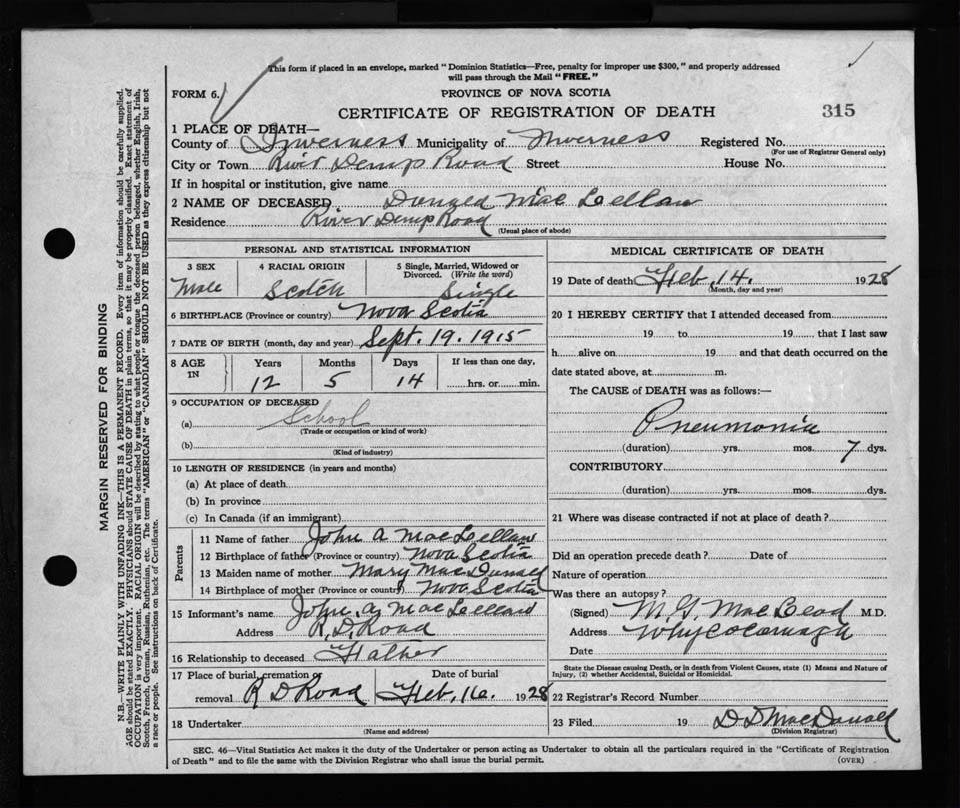 This form if placed in an envelope, marked "Dominion Statistics—Free, penalty for improper use $300," and properly addressed
will pass through the Mail "FREE."
FORM 6. PROVINCE OF NOVA SCOTIA
CERTIFICATE OF REGISTRATION OF DEATH 315
1 PLACE OF DEATH—
County of Inverness Municipality of Inverness Registered No.
(For use of Registrar General only)
City or Town River Demp Road Street House No.
If in hospital or institution, give name
2 NAME OF DECEASED Donald Mac Lellan
Residence River Demp Road
(Usual place of abode)
PERSONAL AND STATISTICAL INFORMATION
3 SEX 4 RACIAL ORIGIN 5 Single, Married, Widowed or Divorced. (Write the word)
Male Scotch Single
6 BIRTHPLACE (Province or country) Nova Scotia
7 DATE OF BIRTH (month, day and year) Sept. 19. 1915
8 AGE IN Years Months Days If less than one day,
12 5 14 hrs. or min.
9 OCCUPATION OF DECEASED
(a) School
(Trade or occupation or kind of work)
(b)
(Kind of industry)
10 LENGTH OF RESIDENCE (in years and months)
(a) At place of death
(b) In province
(c) In Canada (if an immigrant)
Parents
11 Name of father John A MacLellan
12 Birthplace of father (Province or country) Nova Scotia
13 Maiden name of mother Mary MacDonald
14 Birthplace of mother (Province or country) Nova Scotia
15 Informant's name John A MacLellan
Address R. D. Road
16 Relationship to deceased Father
17 Place of burial, cremation or removal R D Road Date of burial Feb. 16. 1928
18 Undertaker
(Name and address)
MEDICAL CERTIFICATE OF DEATH
19 Date of death Feb. 14. 1928
(Month, day and year)
20 I HEREBY CERTIFY that I attended deceased from
19 to 19 , that I last saw
h alive on 19 and that death occurred on the
date stated above, at m.
The CAUSE of DEATH was as follows:—
Pneumonia
(duration) yrs. mos. 7 dys.
CONTRIBUTORY
(duration) yrs. mos. dys.
21 Where was disease contracted if not at place of death?
Did an operation precede death? Date of
Nature of operation
Was there an autopsy?
(Signed) M. G. MacLeod M.D.
Address Whycocomagh
Date
State the Disease causing Death, or in death from Violent Causes, state (1) Means and Nature of
Injury, (2) whether Accidental, Suicidal or Homicidal.
22 Registrar's Record Number
23 Filed 19 D D MacDonald
(Division Registrar)
SEC. 46—Vital Statistics Act makes it the duty of the Undertaker or person acting as Undertaker to obtain all the particulars required in the "Certificate of Registration
of Death" and to file the same with the Division Registrar who shall issue the burial permit. (OVER)
MARGIN RESERVED FOR BINDING
N.B.—WRITE PLAINLY WITH UNFADING INK—THIS IS A PERMANENT RECORD. Every item of information should be carefully supplied.
AGE should be stated EXACTLY. PHYSICIANS should STATE CAUSE OF DEATH in plain terms, so that it may be properly classified. Exact statement of
OCCUPATION is very important. RACIAL ORIGIN will be described by stating to what people or tongue the deceased person belonged, whether English, Irish,
Scotch, French, German, Russian, Ruthenian, etc. The terms "AMERICAN" or "CANADIAN" SHOULD NOT BE USED as they express citizenship but not
a race or people. See instructions on back of Certificate.